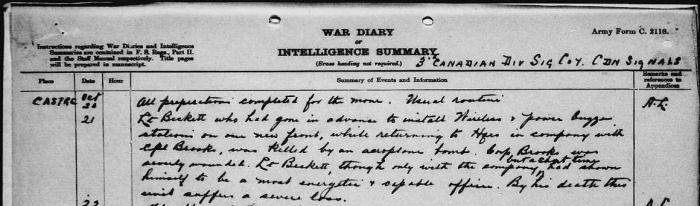 WAR DIARY
or
INTELLIGENCE SUMMARY
(Erase heading not required.)
Army Form C. 2118.
Instructions regarding War Diaries and Intelligence
Summaries are contained in F. S. Regs., Part II.
and the Staff Manual respectively. Title pages
will be prepared in manuscript.
3rd CANADIAN DIV SIG COY. CDN SIGNALS
Place
Date
Hour
Summary of Events and Information
Remarks and
references to
Appendices
CASTRE Oct
20 All preparations completed for the move. Usual routine
21 Lt Beckett who had gone in advance to install Wireless & power buzzer
stations on our new front, while returning to Hqrs in company with
Cpl Brooks, was killed by an aeroplane bomb. Corp. Brooks was
severely wounded. Lt Beckett, though only with the company but a short time had shown
himself to be a most energetic & capable officer. By his death this
unit suffers a severe loss.
22